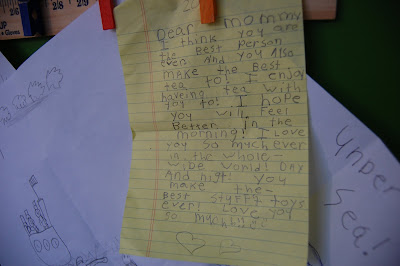 Dear mommy
I think you are
the Best Person
ever And you Also
make the Best
tea to! I enjoy
haveing tea with
you to! I hope
you will Feel
Better in the
morning! I Love
you So much ever
in the whole-
wide world! Day
And night you
make the-
Best stuffy toys
ever! Love you
so much!
under
Sea!